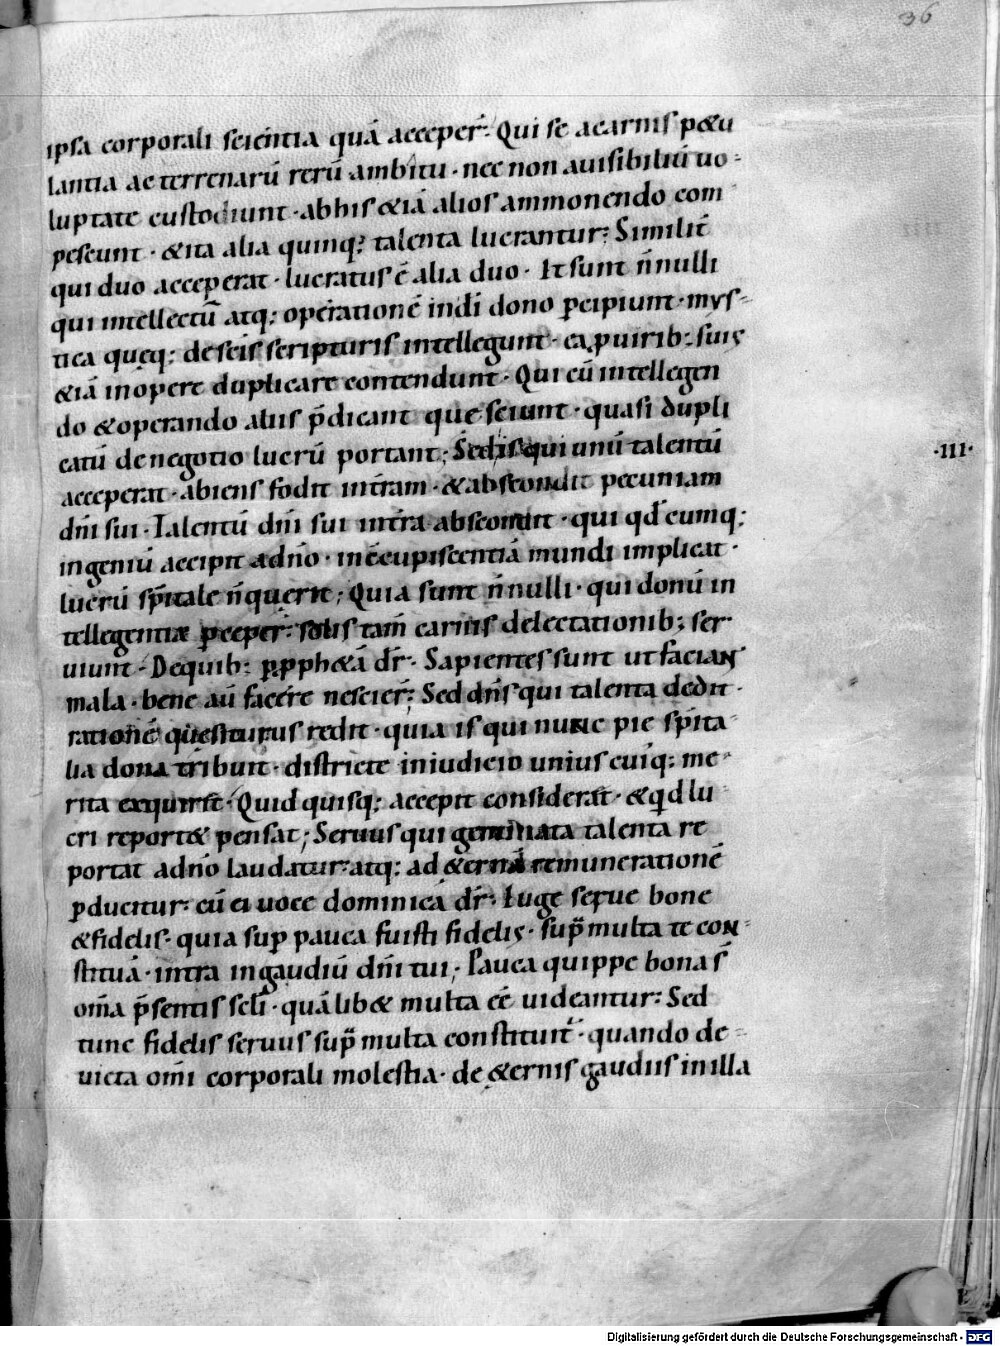 36
ipsa corporali scientia quā acceper̄. Qui se a carnis p&u
lantia ac terrenarū rerū ambitu · nec non a uisibiliū uo-
luptate custodiunt · ab his &iā alios ammonendo com
pescunt · &ita alia quinq; talenta lucrantur; Similit̄
qui duo acceperat · lucratus ē alia duo · Et sunt ñnulli
qui intellectū atq; operationē indī dono p̄cipiunt · mys-
tica quęq; de scīs scripturis intellegunt · ea p uirib; suis
&iā in opere duplicare contendunt · Qui cū intellegen
do &operando aliis p̄dicant que sciunt · quasi dupli
catū de negotio lucrū portant; Sed is qui unū talentū
·III·
acceperat · abiens fodit in t̄ram · &abscondit pecuniam
dnī sui · Talentū dnī sui in t̄ra abscondit · qui qd̄cumq;
ingeniū accipit a dn̄o · in c̄cupiscentiā mundi implicat ·
lucrū spi̅tale ñ querit; Quia sunt ñnulli · qui donū in
tellegentiæ p̄ceper̄; solis tam̄ carnis delectationib; ser
uiunt · De quib; p pph&ā dr̄ · Sapientes sunt ut faciant
mala · bene aū facere nescier̄; Sed dn̄s qui talenta dedit ·
rationē questurus redit · quia is qui nunc pie spi̅ta-
lia dona tribuit · districte in iudicio unius cui'q; me-
rita exquirit · Quid quisq; accepit considerat · &qd lu
cri report& pensat; Seruus qui geminata talenta re
portat ad dn̄o laudatur · atq; ad &ernā remunerationē
p̄ducitur; cū ei uoce dominica dr̄ · Euge serue bone
&fidelis · quia sup̄ pauca fuisti fidelis · sup̄ multa te con-
stituā · intra in gaudiū dnī tui; Pauca quippe bona s̄
om̄a p̄sentis sc̄li · quālib& multa eē uideantur; Sed
tunc fidelis seruus sup̄ multa constituit̄ · quando de-
uicta om̄i corporali molestia · de &ernis gaudiis in illa
Digitalisierung gefördert durch die Deutsche Forschungsgemeinschaft - DFG